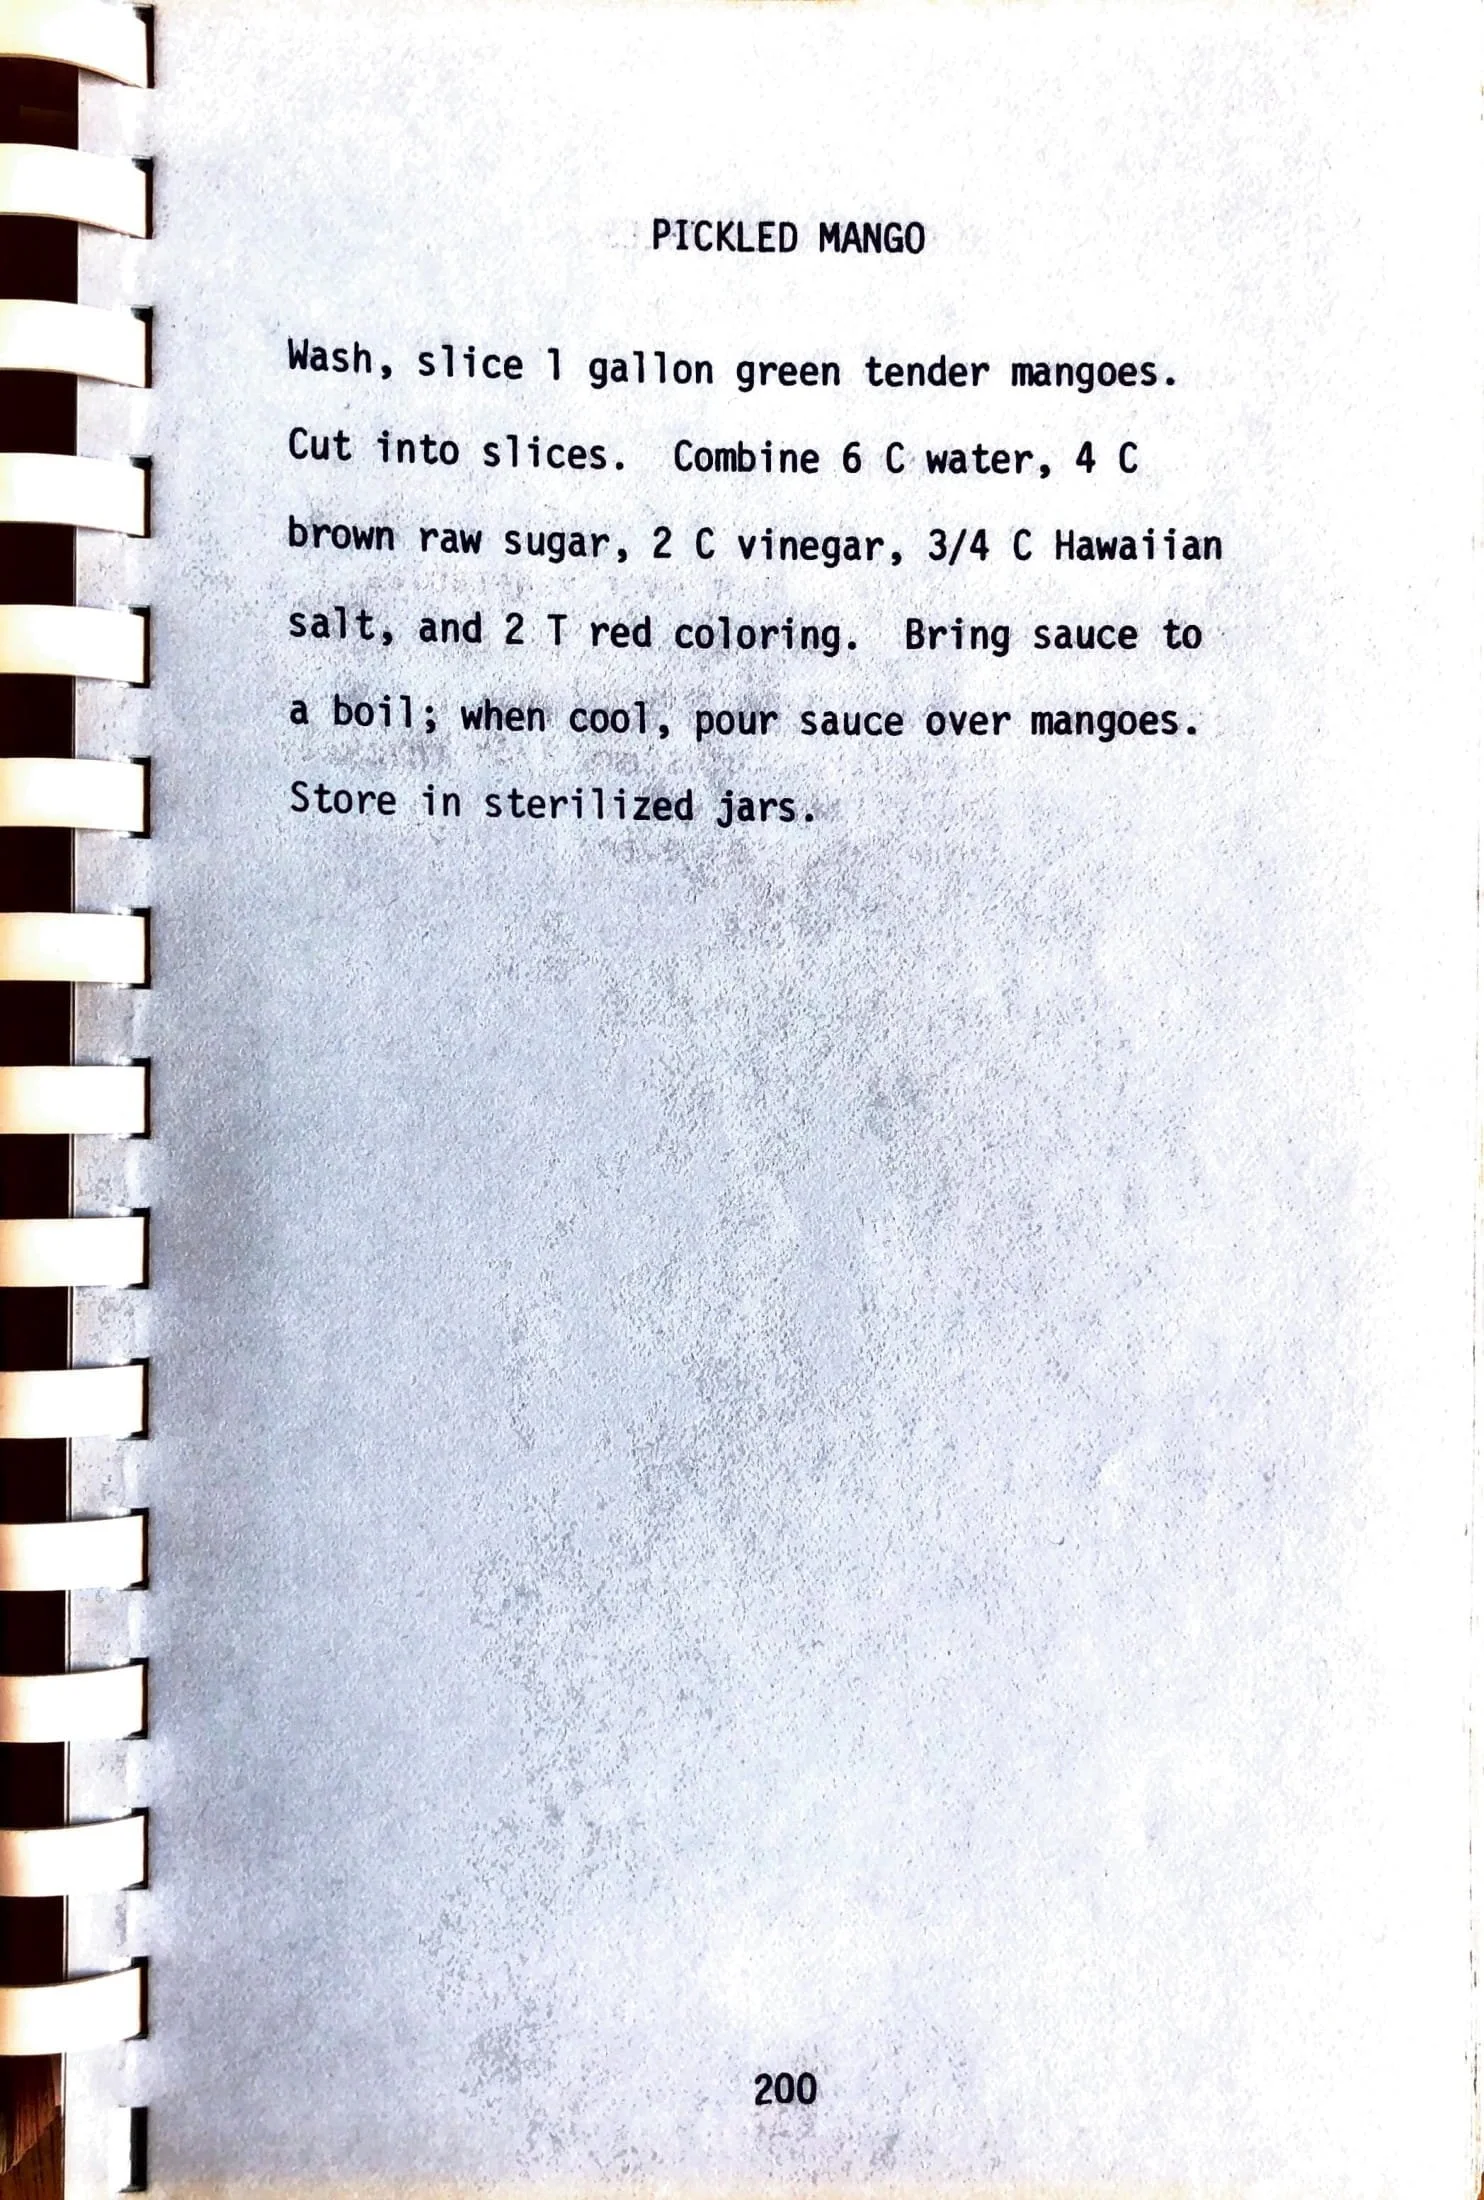 PICKLED MANGO
Wash, slice 1 gallon green tender mangoes.
Cut into slices. Combine 6 C water, 4 C
brown raw sugar, 2 C vinegar, 3/4 C Hawaiian
salt, and 2 T red coloring. Bring sauce to
a boil; when cool, pour sauce over mangoes.
Store in sterilized jars.
200